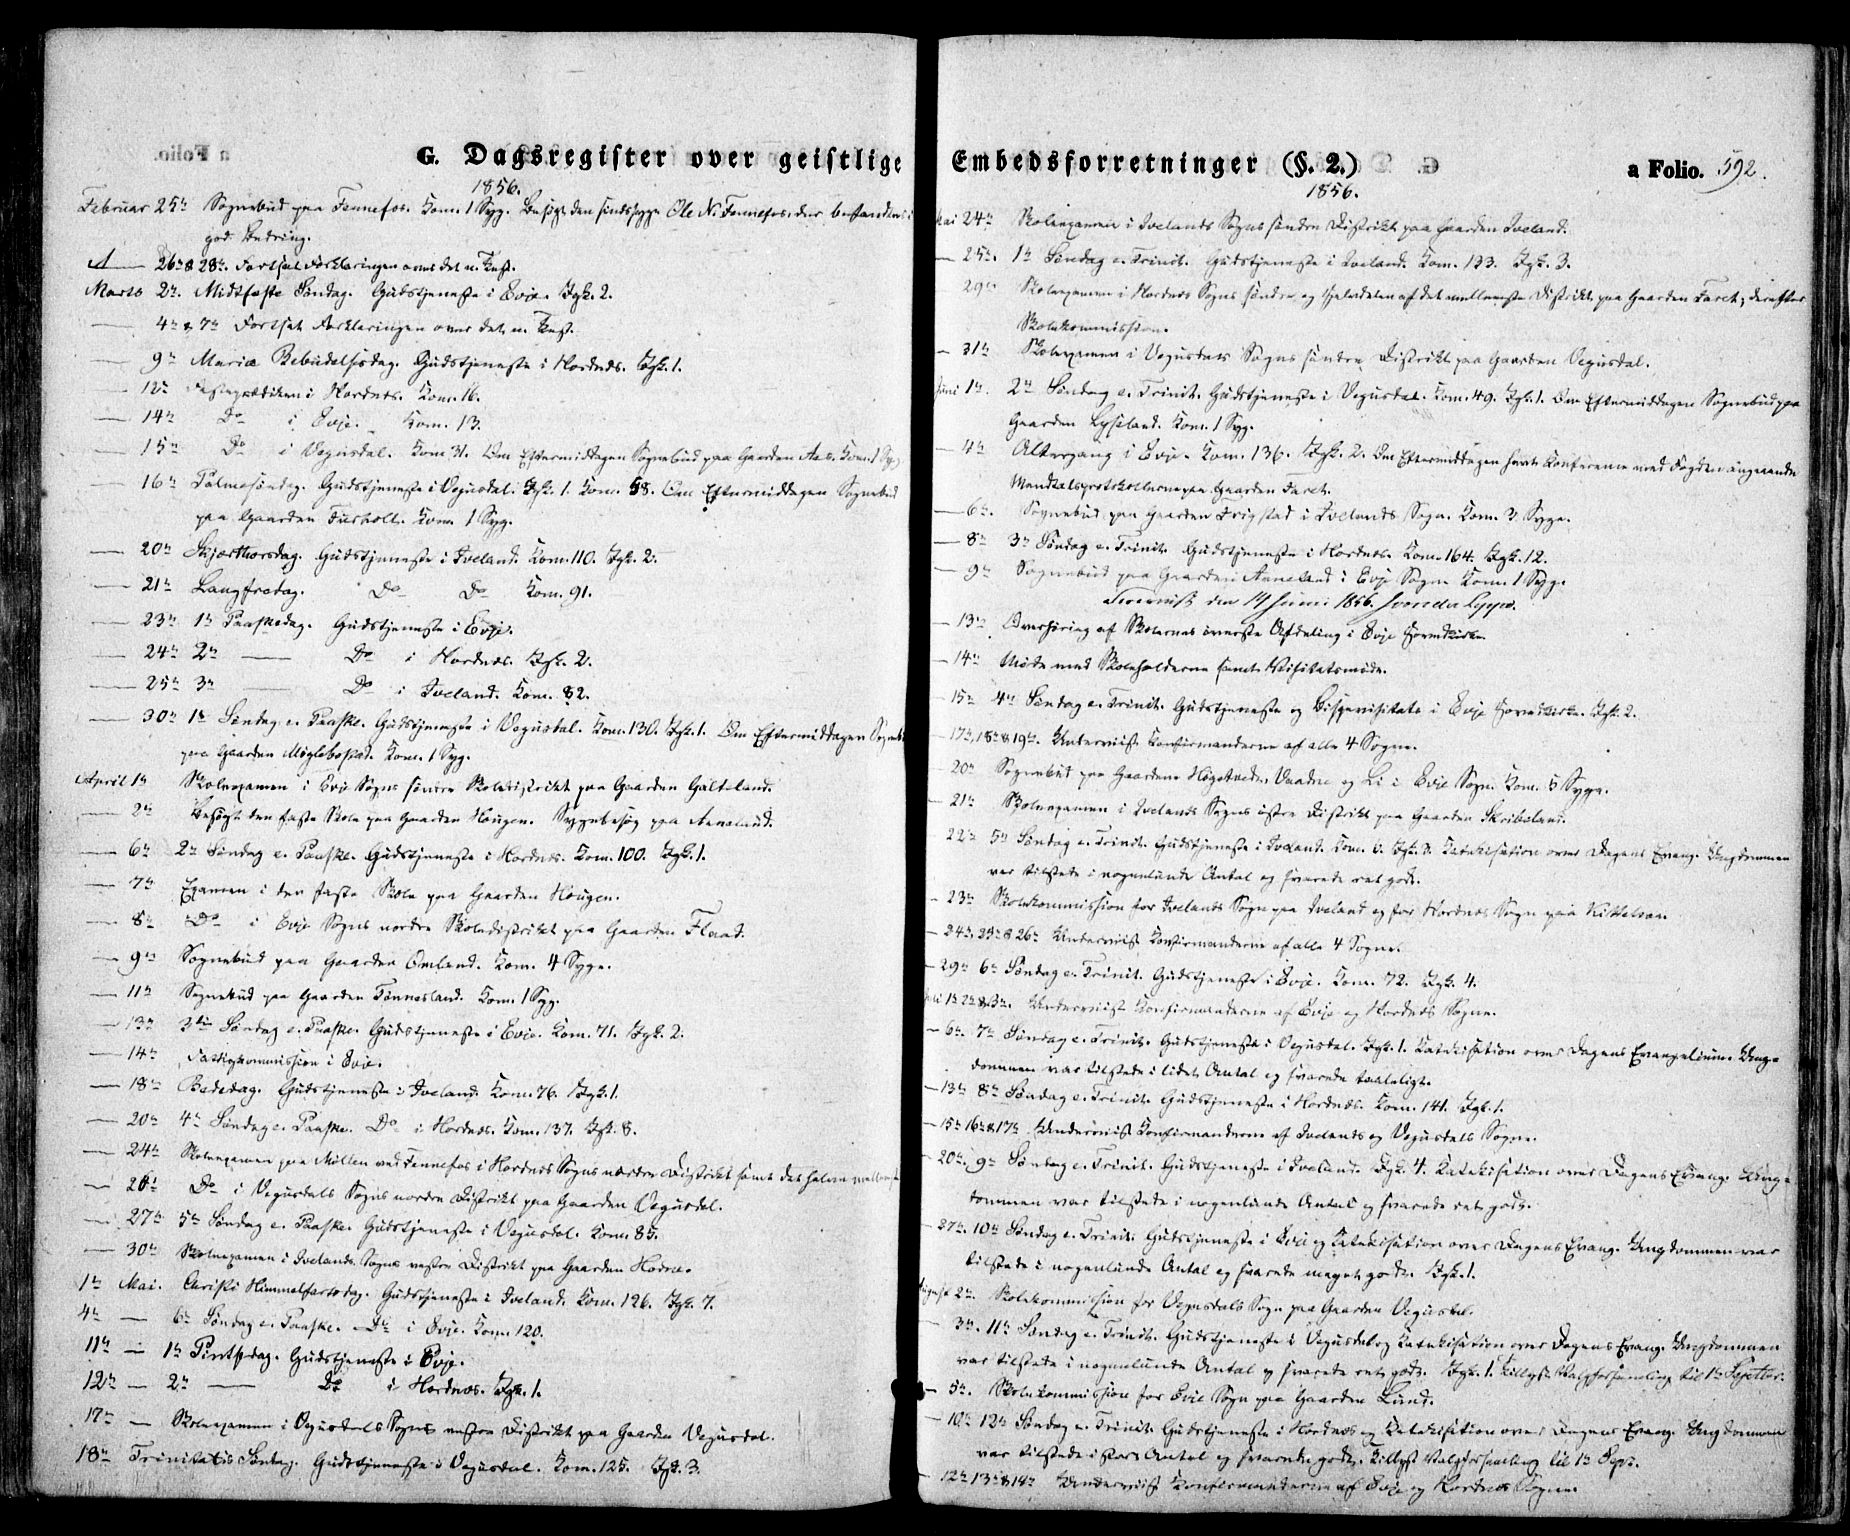 G. Dagsregister over geistlige
1856.
Februar 25de Sognebud paa Fennefos. Kom. 1 Syg. Besøgt den sindssyge Ole N. Fennefos, der befandtes i
god Bedring.
26de & 28de. Fortsat Forklaringen over det n. Test.
Marts 2de. Midtfaste Søndag. Gudstjeneste i Evje. Igk. 2.
— 4de & 7de Fortsat Forklaringen over det n. Test.
— 9de Mariæ Bebudelsesdag. Gudstjeneste i Hordnæs. Igk. 1.
— 12te Fasteprædiken i Hordnæs. Kom. 16.
— 14de Do i Evje. Kom. 13.
— 15de Do i Vegusdal. Kom. 31. Om Eftermiddagen Sognebud paa Gaarden Aas. Kom. 1 Syg.
— 16de Palmesøndag. Gudstjeneste i Vegusdal. Igk. 1. Kom. 58. Om Eftermiddagen Sognebud
paa Gaarden. Kom. 1 Syg.
— 20de Skjærthorsdag. Gudstjeneste i Iveland. Kom. 110. Igk. 2.
— 21de Langfredag. Do Do Kom. 91.
— 23de 1ste Paaskedag. Gudstjeneste i Evje.
— 24de 2den — Do i Hordnæs. Igk. 2.
— 25de 3de — Do i Iveland. Kom. 82.
— 30te 1ste Søndag e. Paaske. Gudstjeneste i Vegusdal. Kom. 130. Igk. 1. Om Eftermiddagen Sognebud
paa Gaarden Møglebostad. Kom. 1 Syg.
April 1ste Skoleexamen i Evje Sogns søndre Skoledistrikt paa Gaarden Galteland.
— 2de Besøgt den faste Skole paa Gaarden Hougen. Sygebesøg paa Anneland.
— 6te 2den Søndag e. Paaske. Gudstjeneste i Hordnæs. Kom. 100. Igk. 1.
— 7de Examen i den faste Skole paa Gaarden Hougen.
— 8de Do i Evje Sogns nordre Skoledistrikt paa Gaarden Flaad.
— 9de Sognebud paa Gaarden Omland. Kom. 4 Syge.
— 11te Sognebud paa Gaarden Tønnesland. Kom. 1 Syg.
— 13de 3die Søndag e. Paaske. Gudstjeneste i Evje. Kom. 71. Igk. 2.
— 14de Fattigkommission i Evje.
— 18de Bededag. Gudstjeneste i Iveland. Kom. 76. Igk. 1.
— 20de 4de Søndag e. Paaske. Do i Hordnæs. Kom. 137. Igk. 8.
— 24de Skoleexamen paa Møllen ved Fennefos i Hordnæs Sogns nordre Distrikt samt det halve mellemste
— 26de Do i Vegusdals Sogns nordre Distrikt paa Gaarden Vegusdal.
— 27de 5te Søndag e. Paaske. Gudstjeneste i Vegusdal. Kom. 85.
— 30te Skoleexamen i Ivelands Sogns vestre Distrikt paa Gaarden Hodne.
1ste Mai. Christi Himmelfartsdag. Gudstjeneste i Iveland. Kom. 126. Igk. 7.
4de — 6te Søndag e. Paaske. Do i Evje. Kom. 120.
11te — 1ste Pintsedag. Gudstjeneste i Evje.
12te — 2den — Do i Hordnæs. Igk. 1.
17de — Skoleexamen i Vegusdals Sogns vestre Distrikt paa Gaarden Vegusdal.
18de Trinitatis Søndag. Gudstjeneste i Vegusdal. Kom. 125. Igk. 3.
Embedsforretninger (§. 2.)
a Folio. 592.
1856.
Mai 24de Skoleexamen i Ivelands Sogns søndre Distrikt paa Gaarden Iveland.
— 25de. 1ste Søndag e. Trinit. Gudstjeneste i Iveland. Kom. 133. Igk. 3.
29de Skoleexamen i Hordnæs Sogns søndre og halvdelen af det mellemste Distrikt paa Gaarden Faret; derefter
Skolekommission.
— 31te Skoleexamen i Vegusdals Sogns søndre Distrikt paa Gaarden Vegusdal.
Juni 1ste. 2den Søndag e. Trinit. Gudstjeneste i Vegusdal. Kom. 49. Igk. 1. Om Eftermiddagen Sognebud paa
Gaarden Lyseland. Kom. 1 Syg.
— 4de Altergang i Evje. Kom. 136. Igk. 2. Om Eftermiddagen havt Konference med Fogden angaaende
Mandtalsprotokollerne paa Gaarden Faret.
— 6te. Sognebud paa Gaarden Frigstad i Ivelands Sogn. Kom. 3 Syge.
— 8de 3de Søndag e. Trinit. Gudstjeneste i Hordnæs. Kom. 164. Igk. 12.
— 9de Sognebud paa Gaarden Anneland i Evje Sogn. Kom. 1 Syg.
den 14 Juni 1856. Jvonder Lype.
— 13de Overhøring af Skolernes øverste Afdeling i Evje Hovedkirke.
— 14de Møde med Skoleholderne samt Visitatsmøde.
— 15de 4de Søndag e. Trinit. Gudstjeneste og Bispevisitats i Evje Hovedkirke. Igk. 2.
— 17de, 18de & 19de. Underviist Konfirmanderne af alle 4 Sogne.
— 20de Sognebud paa Gaardene Høgetvedt, Vaadne og Li i Evje Sogn. Kom. 5 Syge.
— 21de Skoleexamen i Ivelands Sogns østre Distrikt paa Gaarden Skribeland.
22de 5te Søndag e. Trinit. Gudstjeneste i Iveland. Kom. 6. Igk. 8. Katekisation over Dagens Evang. Ungdommen
var tilstede i nogenlunde Antal og svarede ret godt.
— 23de Skolekommission for Ivelands Sogn paa Iveland og for Hordnæs Sogn paa Kittelsaa.
— 24de, 25de & 26de Underviist Konfirmanderne af alle 4 Sogne.
— 29de 6te Søndag e. Trinit. Gudstjeneste i Evje. Kom. 72. Igk. 4.
Juli 1ste 2de & 3de. Underviist Konfirmanderne af Evje og Hordnæs Sogne.
— 6te. 7de Søndag e. Trinit. Gudstjeneste i Vegusdal. Igk. 1. Katekisation over Dagens Evangelium. Ung-
dommen var tilstede i lidet Antal og svarede taaleligt.
— 13de 8de Søndag e. Trinit. Gudstjeneste i Hordnæs. Kom. 141. Igk. 1.
— 15de 16de & 17de Underviist Konfirmanderne af Ivelands og Vegusdals Sogne.
— 20de. 9de Søndag e. Trinit. Gudstjeneste i Iveland. Igk. 4. Katekisation over Dagens Evang. Ung-
dommen var tilstede i nogenlunde Antal og svarede ret godt.
— 27de. 10de Søndag e. Trinit. Gudstjeneste i Evje og Katekisation over Dagens Evang. Ungdommen var
tilstede i nogenlunde Antal og svarede meget godt. Igk. 1.
August 2de. Skolekommission for Vegusdals Sogn paa Gaarden Vegusdal.
— 3de. 11te Søndag e. Trinit. Gudstjeneste i Vegusdal og Katekisation over Dagens Evang. Ungdommen
var tilstede i nogenlunde Antal og svarede ret godt. Igk. 1. Tillyst Valgforsamling til 1ste Septbr.
— 5te. Skolekommission for Evje Sogn paa Gaarden Lund.
— 10de 12te Søndag e. Trinit. Gudstjeneste i Hordnæs og Katekisation over Dagens Evang. Ungdommen
var tilstede i stort Antal og svarede godt. Tillyst Valgforsamling til 1ste Sept.
— 12te 13de & 14de Underviist Konfirmanderne af Evje og Hordnæs Sogne.